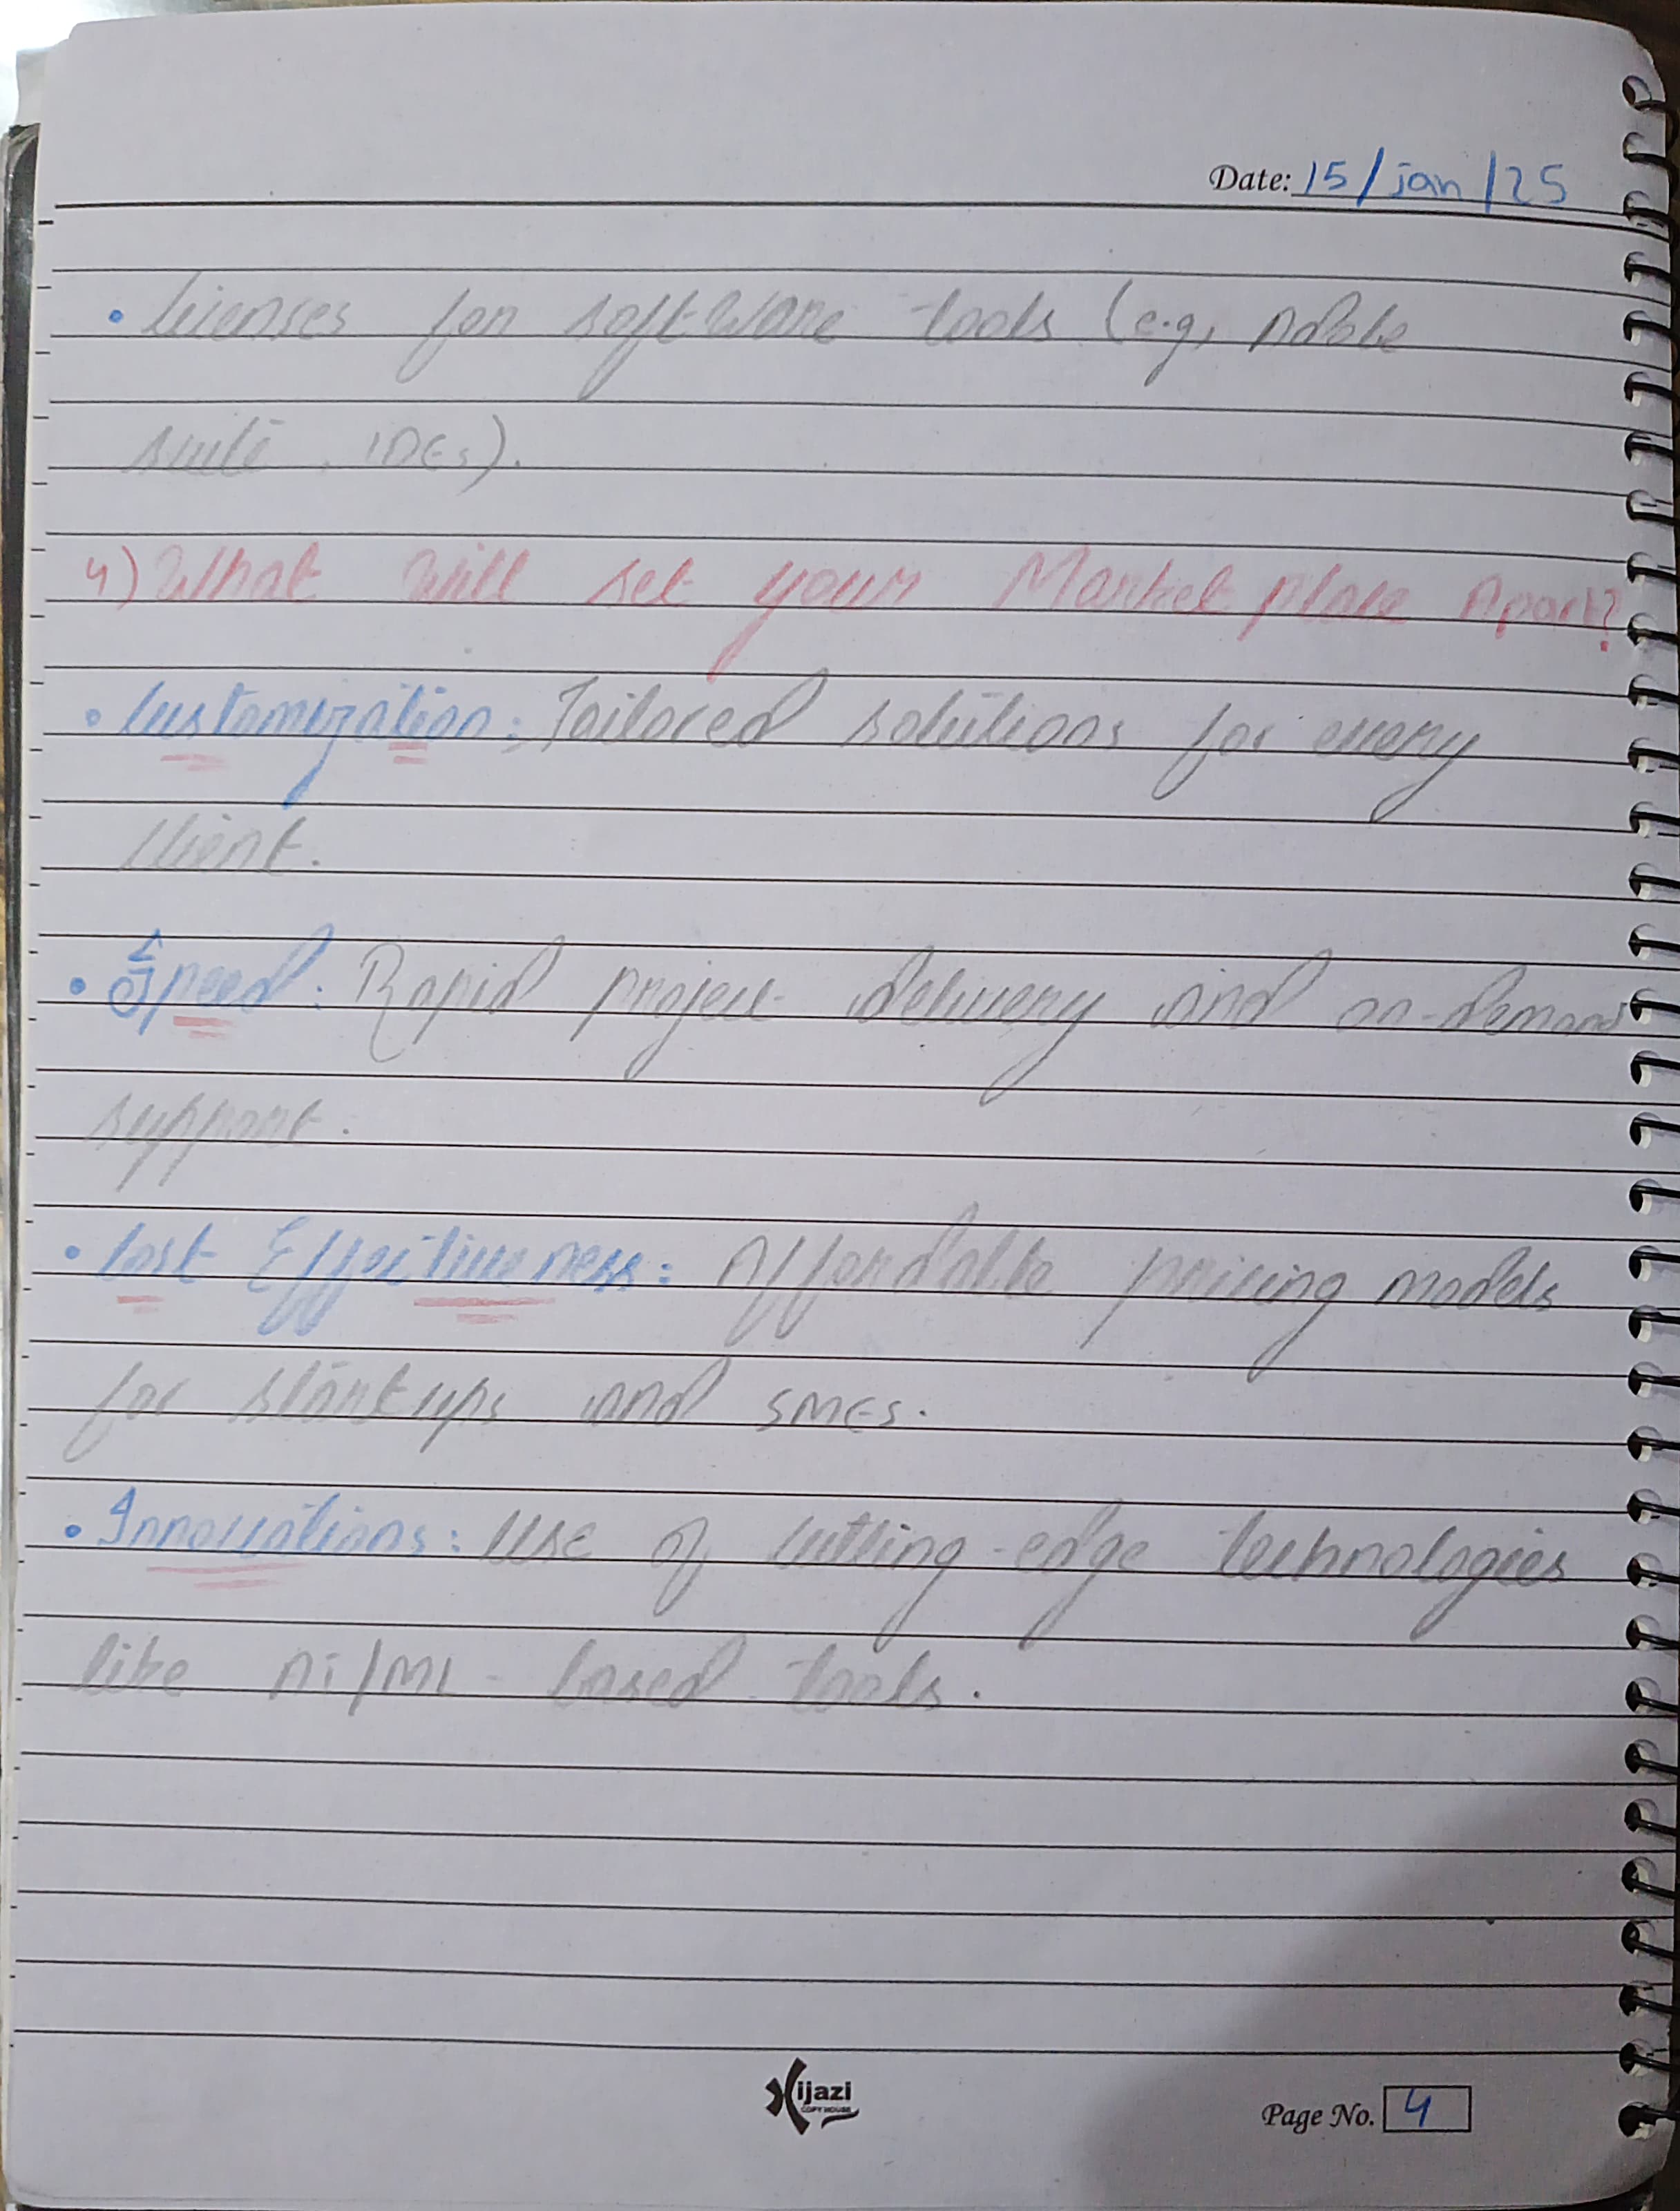 Date: 15/jan/25
• Licenses for software tools (e.g, Adobe
suite, IDEs).
4) What will set your Market place Apart?
• Customization: Tailored solutions for every
client.
• Speed: Rapid project delivery and on-demand
support.
• Cost Effectiveness: Affordable pricing models
for startups and SMEs.
• Innovations: Use of cutting-edge technologies
like Ai/ML-based tools.
Hijazi
COPY HOUSE
Page No. 4